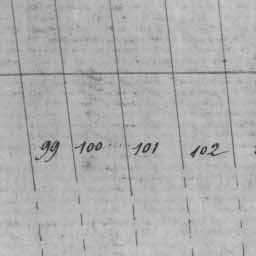 99 100 101 102